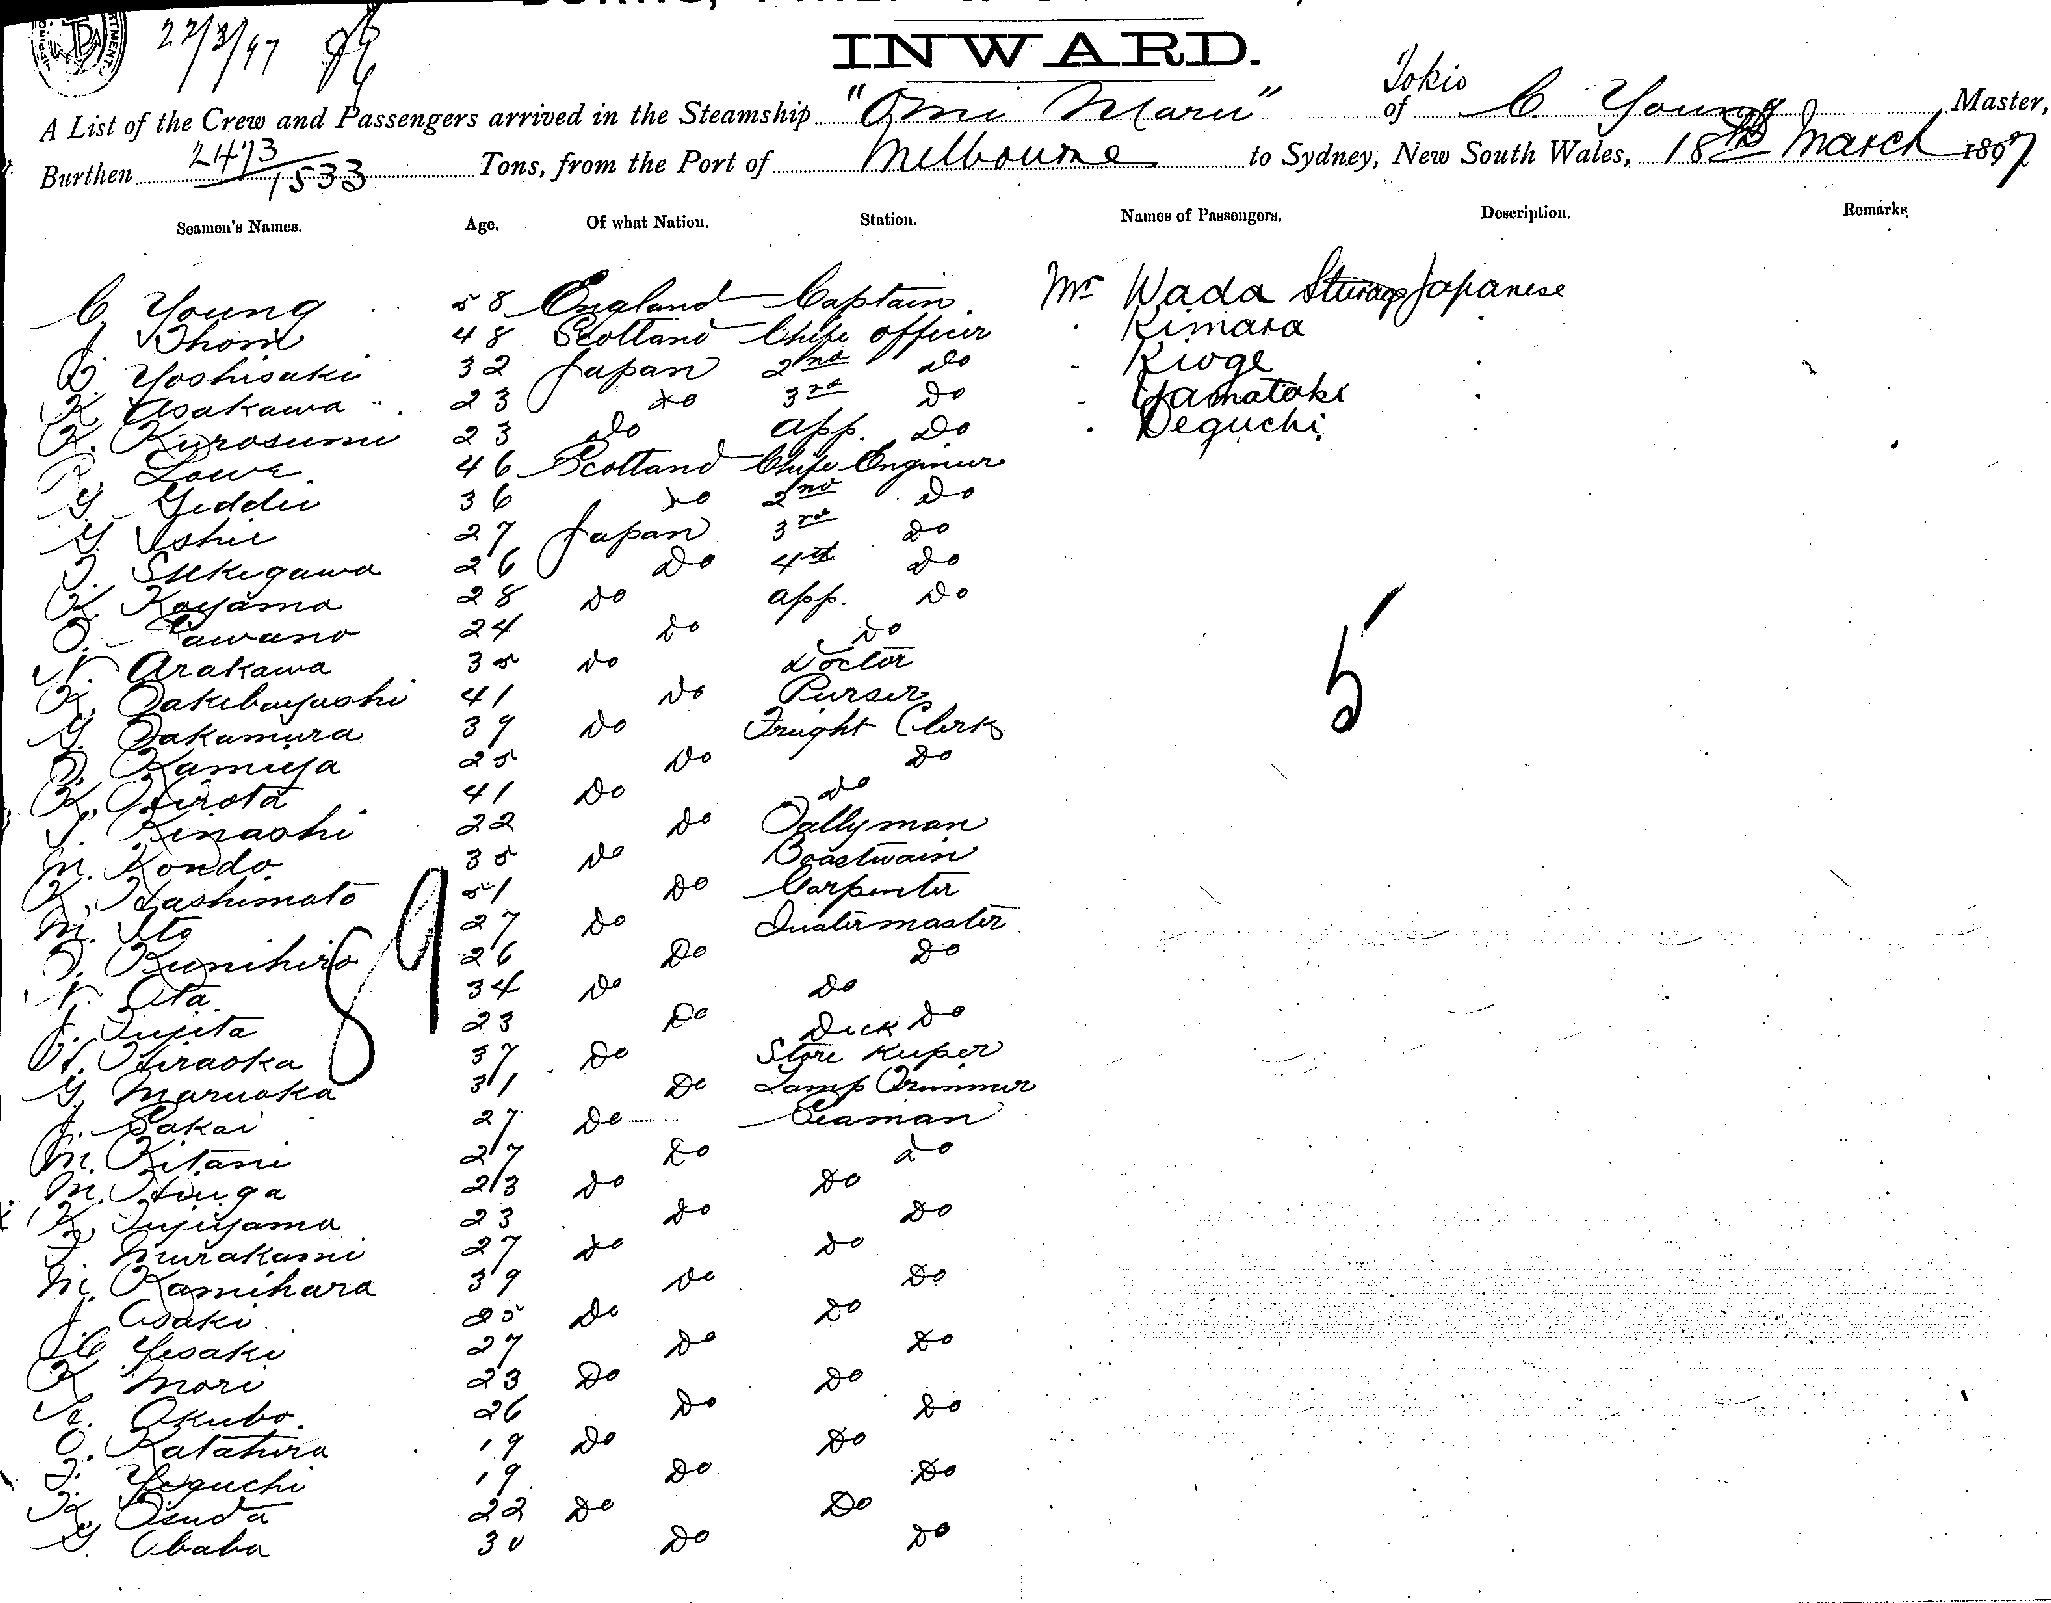 22/3/97
INWARD.
A List of the Crew and Passengers arrived in the Steamship "Omi Maru" of Tokio C Young Master,
Burthen 2473/1533 Tons, from the Port of Melbourne to Sydney, New South Wales, 18th March 1897
Seamen's Names. Age. Of what Nation. Station. Names of Passengers. Description. Remarks.
C Young 58 England Captain Mr Wada Steerage Japanese
J Thom 48 Scotland Chife officer " Kimara
Yoshisaki 32 Japan 2nd Do " Kioge
K Asakawa 23 Do 3rd Do " Yamataki
K. Kurosumi 23 Do app. Do " Deguchi
R Lowe 46 Scotland Chife Enginer
G Geddie 36 Do 2nd Do
Y. Ishii 27 Japan 3rd Do
Sukegawa 26 Do 4th Do
K. Koyama 28 Do app. Do
24 Do Do
N. Arakawa 35 Do Doctor
K. Takebayashi 41 Do Purser
Y. Takamura 39 Do Fright Clerk
Kamiya 25 Do Do
K. Hirota 41 Do Do
Kinashi 22 Do Tallyman
M. Kondo 35 Do Boastwain
K. Hashimoto 51 Do Carpenter
M. Ito 27 Do Quatermaster
Kunihiro 26 Do Do
N. Ota 34 Do Do
J. Fujita 23 Do Deck Do
H. Hiraoka 37 Do Store Keeper
Y. Maruoka 31 Do Lamp Trimmer
J. Sakai 27 Do Seaman
M. Kitani 27 Do Do
M. Hinga 23 Do Do
K. Fujiyama 23 Do Do
Murakami 27 Do Do
M. Kamihara 39 Do Do
J. Asaki 25 Do Do
Yesaki 27 Do Do
K Mori 23 Do Do
Okubo 26 Do Do
O. Katahira 19 Do Do
Yeguchi 19 Do Do
K Tsuda 22 Do Do
Y. Obaba 30 Do Do
89
5